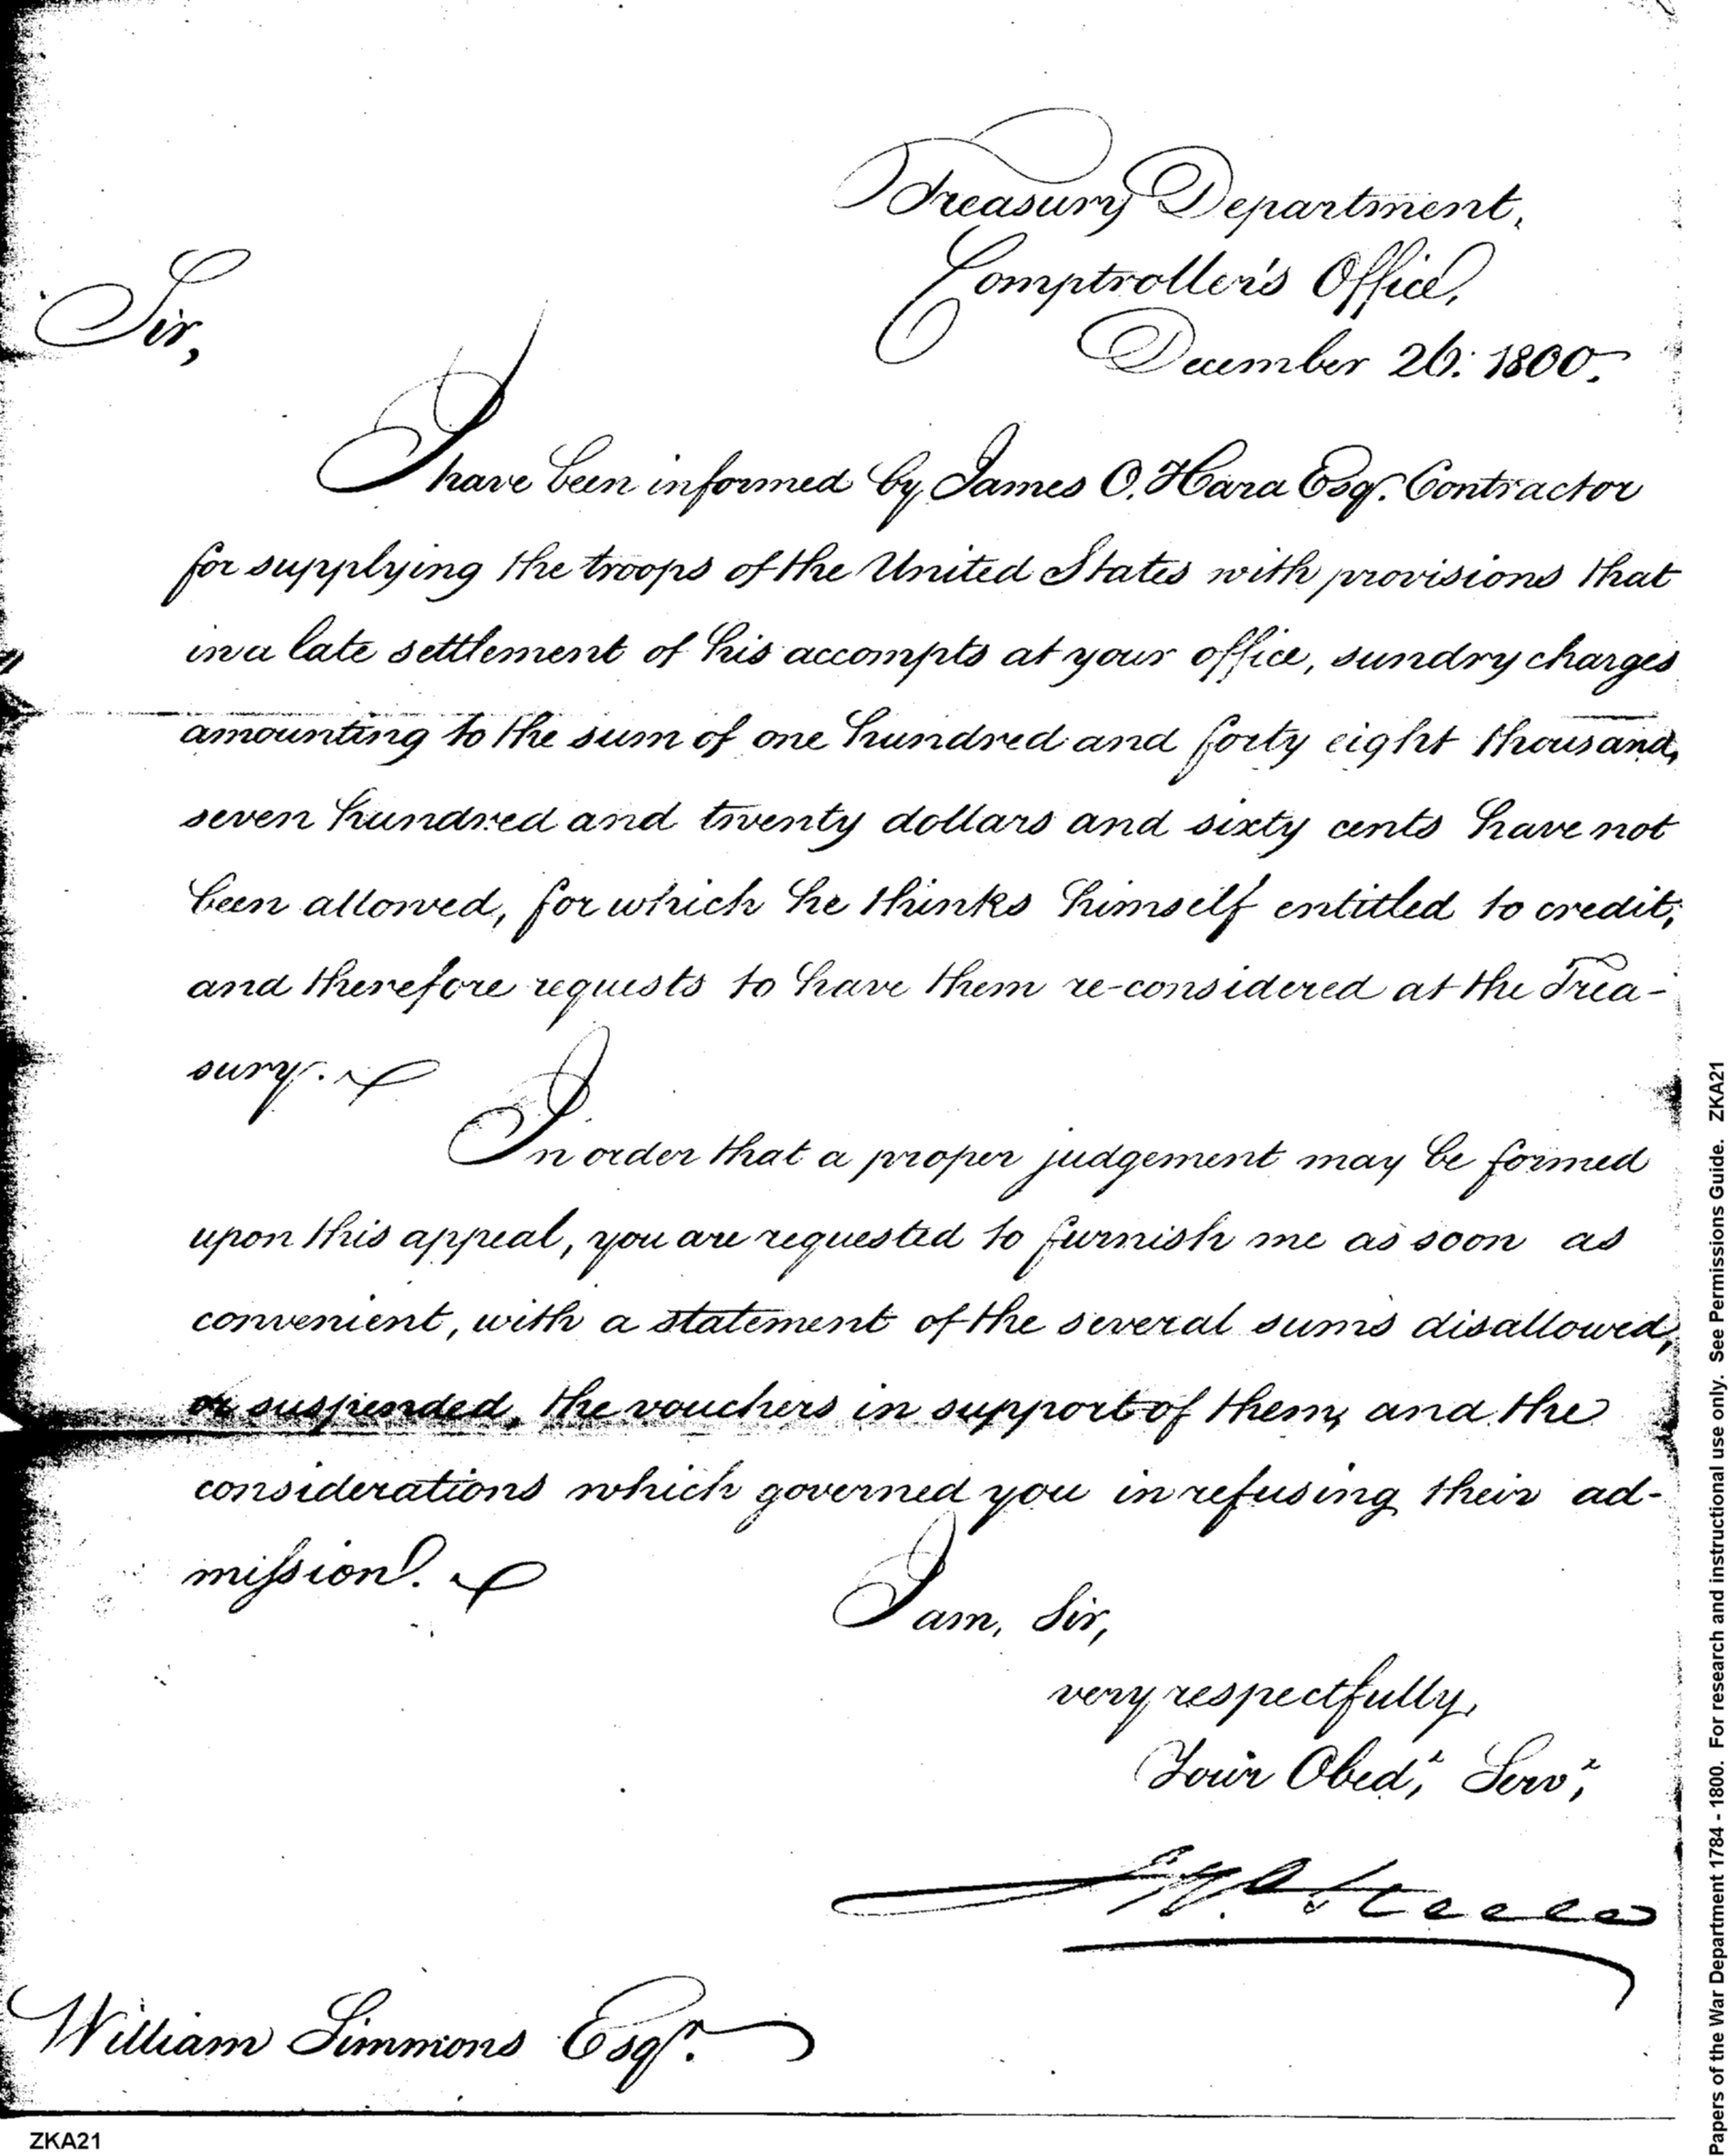 Treasury Department,
Comptroller's Office,
December 26: 1800.
Sir,
I have been informed by James O. Hara Esq. Contractor
for supplying the troops of the United States with provisions that
in a late settlement of his accompts at your office, sundry charges
amounting to the sum of one hundred and forty eight thousand,
seven hundred and twenty dollars and sixty cents have not
been allowed, for which he thinks himself entitled to credit,
and therefore requests to have them re-considered at the Trea-
sury.
In order that a proper judgement may be formed
upon this appeal, you are requested to furnish me as soon as
convenient, with a statement of the several sums disallowed,
or suspended, the vouchers in support of them, and the
considerations which governed you in refusing their ad-
mission.
I am, Sir,
very respectfully,
Your Obedt, Servt,
Jno. Steele
William Simmons Esqr.
ZKA21
Papers of the War Department 1784 - 1800. For research and instructional use only. See Permissions Guide. ZKA21